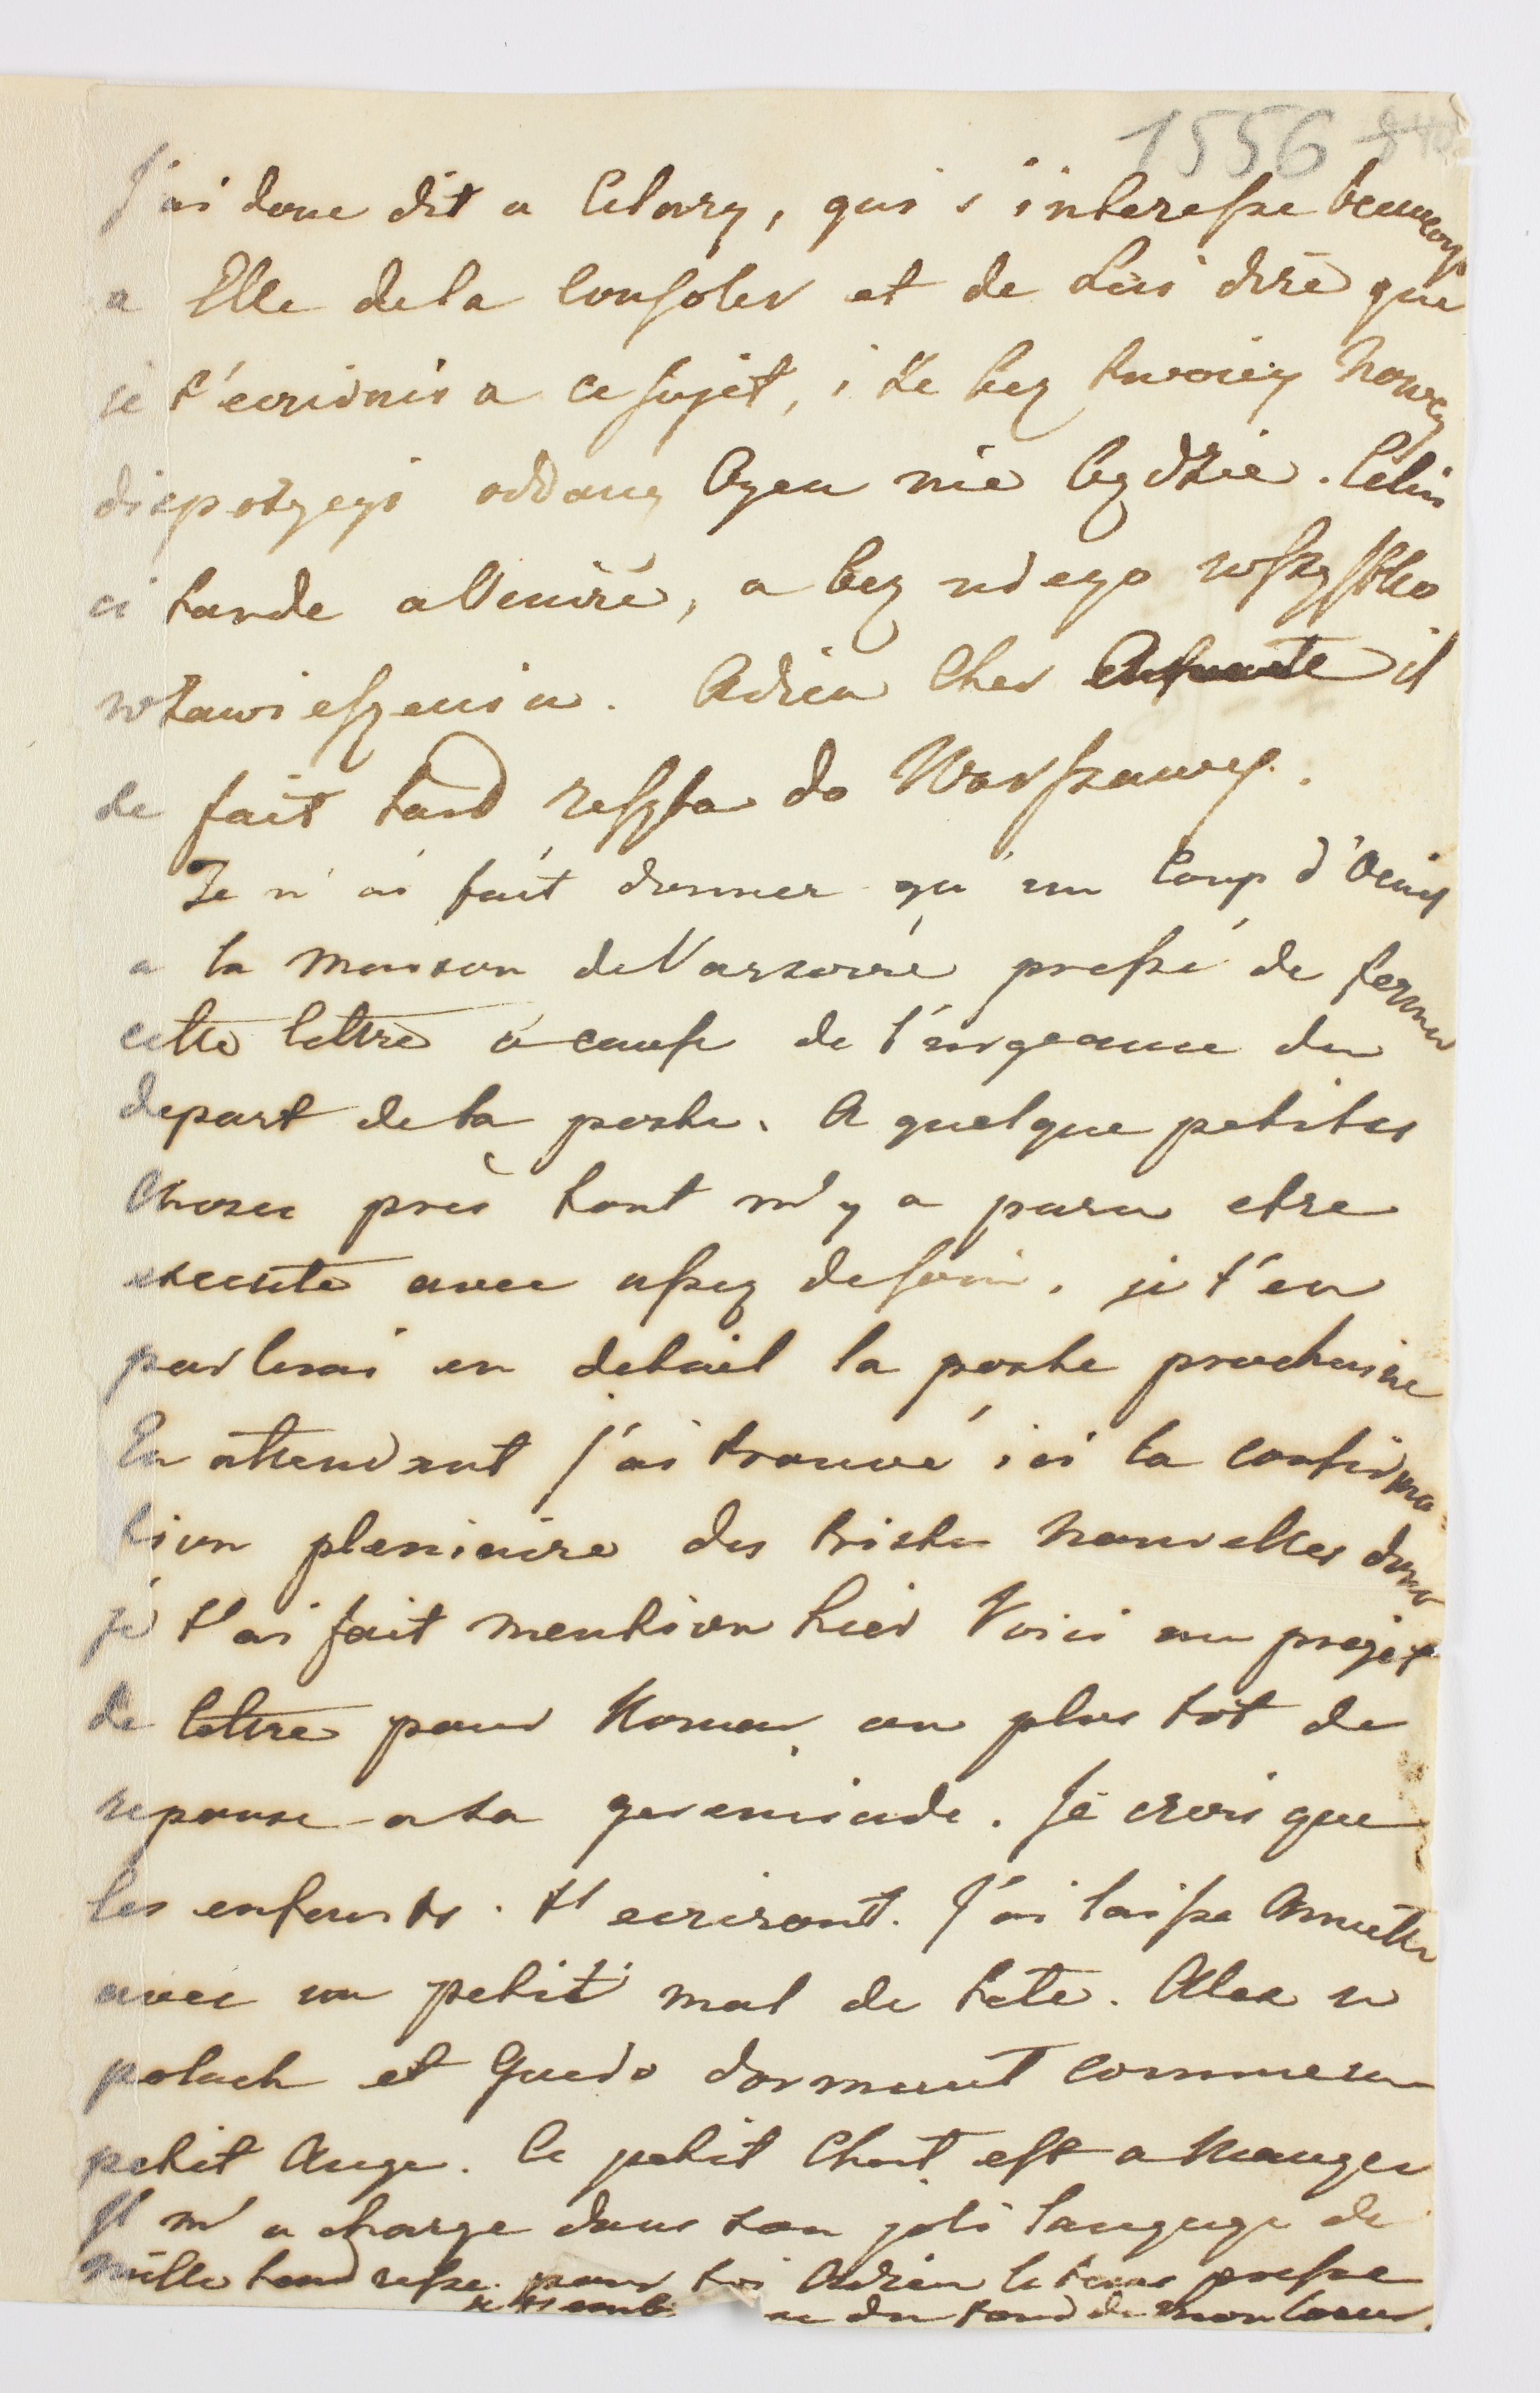 1556
J'ai donc dit a Cetary, qui s'interesse beaucoup
a Elle de la Consoler et de Lui dire que
je t'ecrirais a ce sujet, i że bez twoiey Nowey
dispozycyi oddany Ogan nie będzie. Celui
ci tarde a Venire, a bez niego wszystko
w zawieszeniu. Adieu Cher il
se fait tard reszta do Warszawy.
Je n'ai fait donner qu'un Coup d'Oeuil
a la Maison de Varsovie pressé de fermer
cette lettre a cause de l'urgeance du
depart de la poste. A quelque petites
Choses près tout m'y a paru etre
execute avec assez de soin. je t'en
parlerai en detail la poste prochaine
En attendant j'ai trouvé ici la confirma
tion pleniaire des tristes Nouvelles dont
je t'ai fait mention hier Voici un projet
de lettre pour ou plus tôt de
reponse a sa geremiade. Je crois que
les enfants t'ecriront. J'ai laisse Annette
avec un petit mal de tete. Alex w
polach et Guido dormant comme un
petit Ange. Ce petit Chat est a Manger
Il m'a charge dans son joli langage de
mille tendresse pour toi Adieu le tems presse
du fond de Mon Coeur.